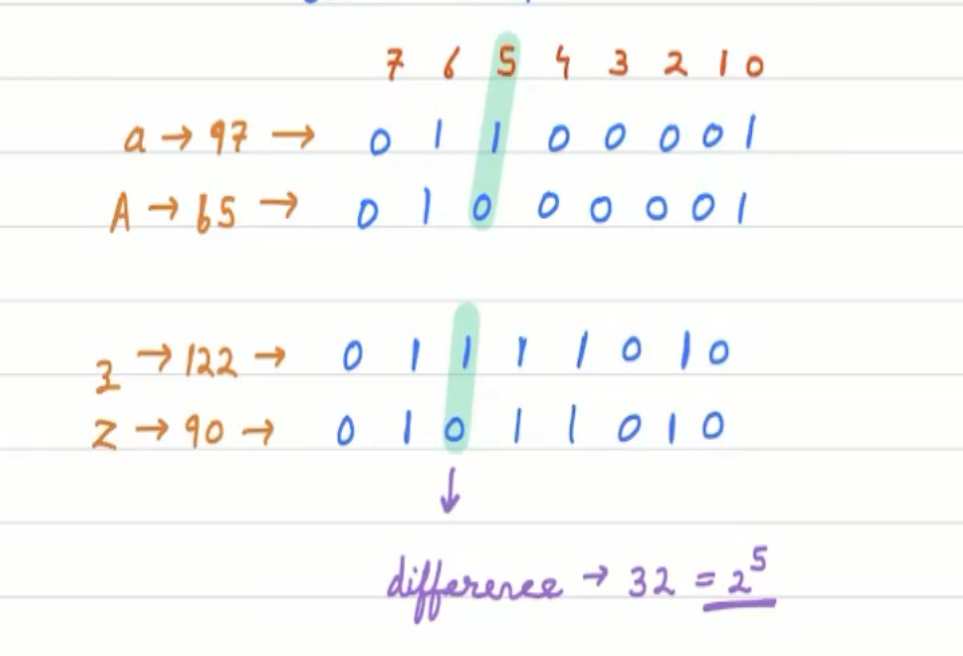 7 6 5 4 3 2 1 0
a → 97 → 0 1 1 0 0 0 0 1
A → 65 → 0 1 0 0 0 0 0 1
z → 122 → 0 1 1 1 1 0 1 0
Z → 90 → 0 1 0 1 1 0 1 0
↓
difference → 32 = 2⁵